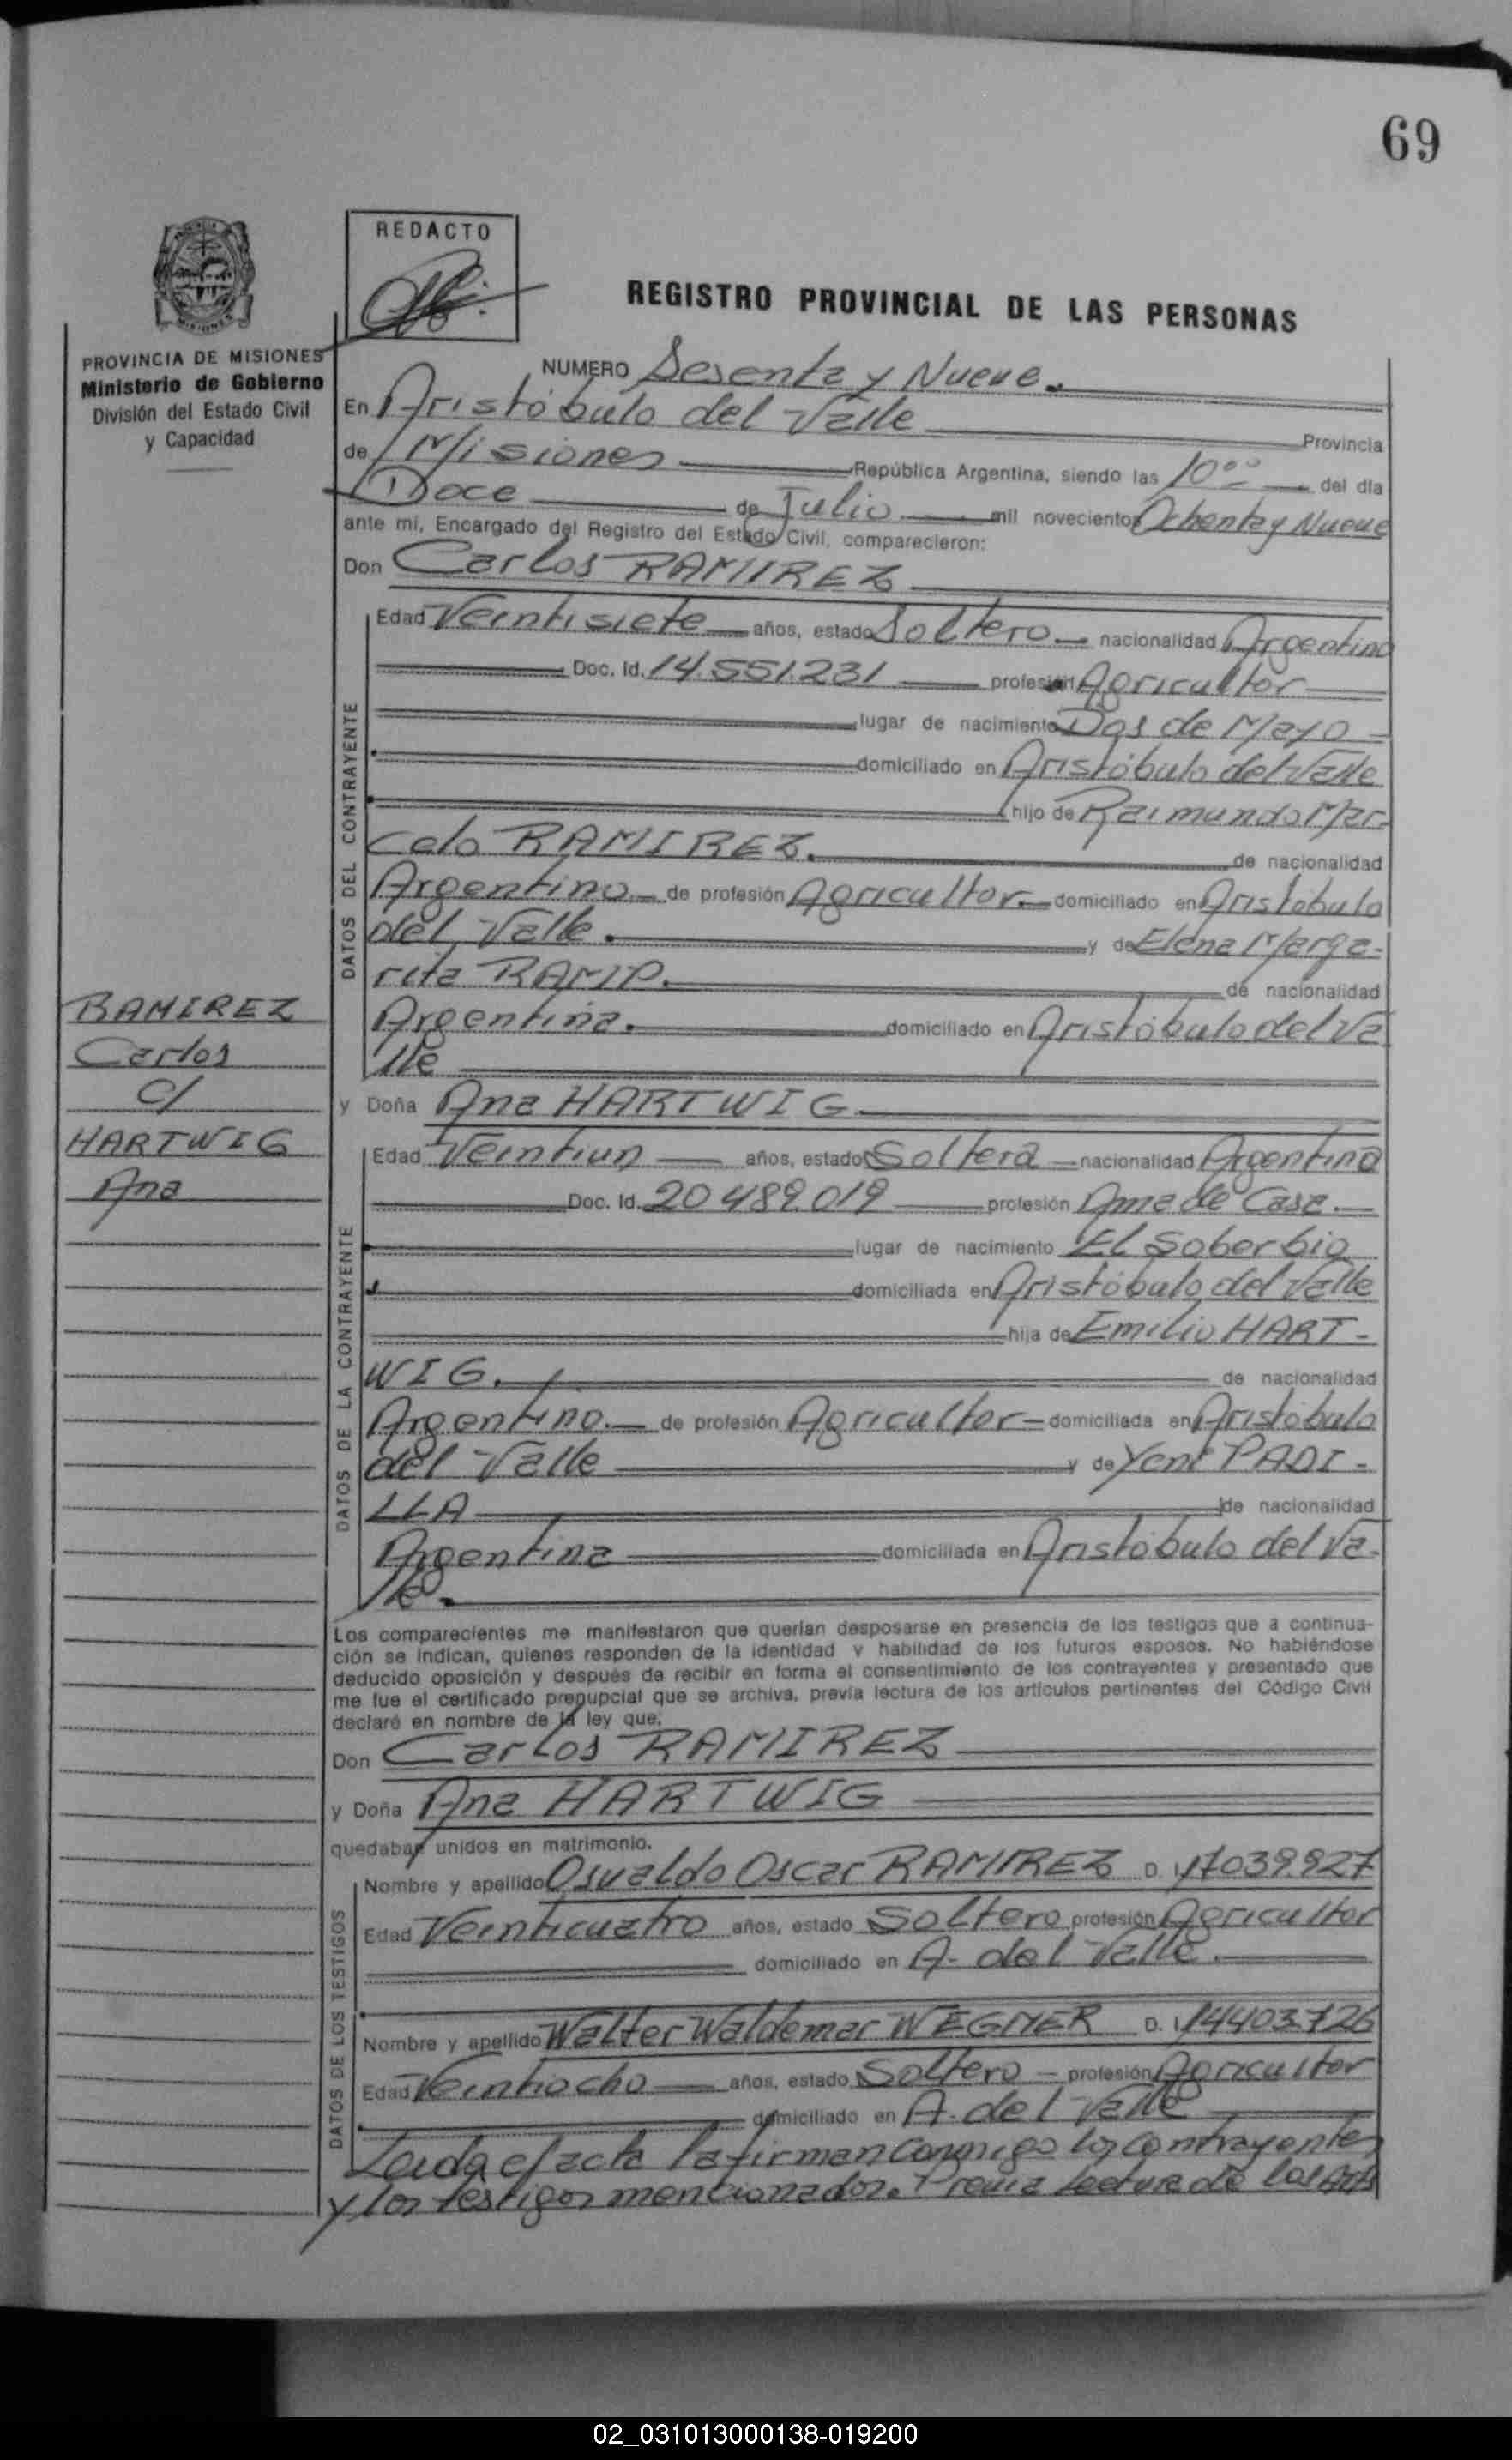 69
REDACTO
REGISTRO PROVINCIAL DE LAS PERSONAS
PROVINCIA DE MISIONES
Ministerio de Gobierno
División del Estado Civil
y Capacidad
NUMERO Sesenta y Nueve.
En Aristóbulo del Valle Provincia
de Misiones República Argentina, siendo las 10°° del día
Doce de Julio mil novecientos Ochenta y Nueve
ante mi, Encargado del Registro del Estado Civil, comparecieron:
Don Carlos RAMIREZ
DATOS DEL CONTRAYENTE
Edad Veintisiete años, estado Soltero nacionalidad Argentino
Doc. Id. 14.551.231 profesión Agricultor
lugar de nacimiento Dos de Mayo
domiciliado en Aristóbulo del Valle
hijo de Raimundo Mar-
celo RAMIREZ. de nacionalidad
Argentino de profesión Agricultor. domiciliado en Aristóbulo
del Valle. y de Elena Marga-
rita RAMP. de nacionalidad
Argentina. domiciliado en Aristóbulo del Va
lle
RAMIREZ
Carlos
C/
HARTWIG
Ana
y Doña Ana HARTWIG
DATOS DE LA CONTRAYENTE
Edad Veintiun años, estado Soltera nacionalidad Argentina
Doc. Id. 20 489.019 profesión Ama de Casa.
lugar de nacimiento El Soberbio
domiciliada en Aristóbulo del Valle
hija de Emilio HART-
WIG. de nacionalidad
Argentino. de profesión Agricultor domiciliada en Aristóbulo
del Valle y de Yeni PADI-
LLA de nacionalidad
Argentina domiciliada en Aristóbulo del Va-
lle.
Los comparecientes me manifestaron que querían desposarse en presencia de los testigos que a continua-
ción se indican, quienes responden de la identidad y habilidad de los futuros esposos. No habiéndose
deducido oposición y después de recibir en forma el consentimiento de los contrayentes y presentado que
me fue el certificado prenupcial que se archiva, previa lectura de los artículos pertinentes del Código Civil
declaré en nombre de la ley que:
Don Carlos RAMIREZ
y Doña Ana HARTWIG
quedaban unidos en matrimonio.
DATOS DE LOS TESTIGOS
Nombre y apellido Osvaldo Oscar RAMIREZ D. I. 17039.927
Edad Veinticuatro años, estado Soltero profesión Agricultor
domiciliado en A. del Valle.
Nombre y apellido Walter Waldemar WEGNER D. I. 14403.726
Edad Veintiocho años, estado Soltero profesión Agricultor
domiciliado en A. del Valle
Leida el acta la firman conmigo los contrayentes
y los testigos mencionados. Previa lectura de los Arts
02_031013000138-019200